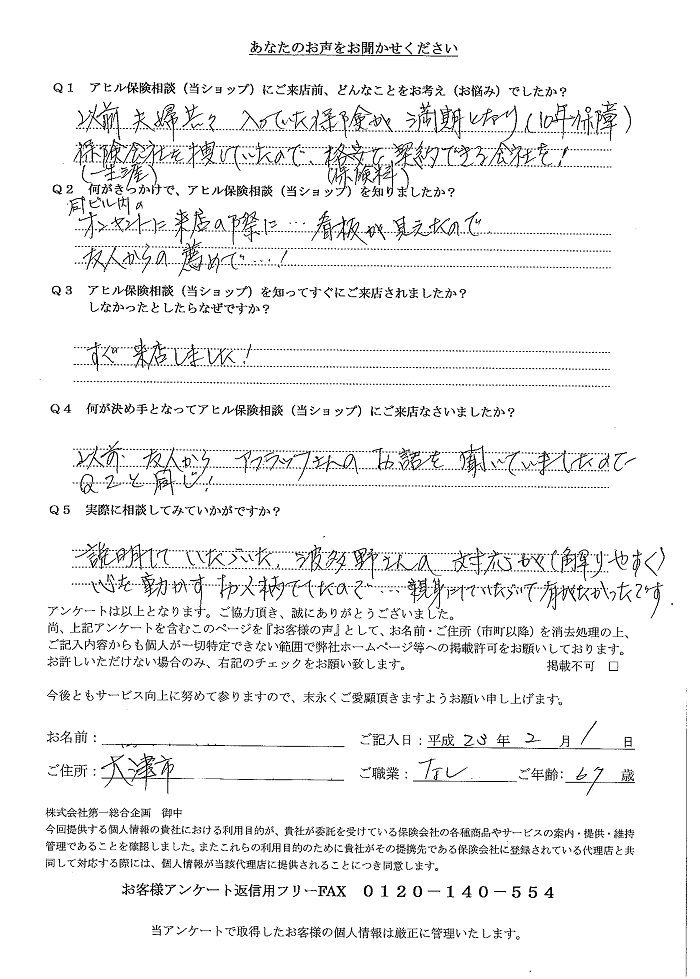 あなたのお声をお聞かせください
Q1 アヒル保険相談（当ショップ）にご来店前、どんなことをお考え（お悩み）でしたか？
以前 夫婦共々 入っていた保険が 満期となり（10年保障）
保険会社を捜していたので、格安で 契約できる会社を！
（一生涯） （保険料）
Q2 何がきっかけで、アヒル保険相談（当ショップ）を知りましたか？
同ビル内の
に来店の際に… 看板が見えたので
友人からの薦めで…！
Q3 アヒル保険相談（当ショップ）を知ってすぐにご来店されましたか？
しなかったとしたらなぜですか？
すぐ 来店しました！
Q4 何が決め手となってアヒル保険相談（当ショップ）にご来店なさいましたか？
以前 友人から アフラックさんの お話を 聞いていましたので
Q2と同じ！
Q5 実際に相談してみていかがですか？
説明して いただいた、波多野さんの 対応が（解りやすく）
心を動かす お人柄でしたので… 親身にしていただいて有がたかったです
アンケートは以上となります。ご協力頂き、誠にありがとうございました。
尚、上記アンケートを含むこのページを『お客様の声』として、お名前・ご住所（市町以降）を消去処理の上、
ご記入内容からも個人が一切特定できない範囲で弊社ホームページ等への掲載許可をお願いしております。
お許しいただけない場合のみ、右記のチェックをお願い致します。 掲載不可 □
今後ともサービス向上に努めて参りますので、末永くご愛顧頂きますようお願い申し上げます。
お名前： ご記入日：平成 23 年 2 月 1 日
ご住所： 大津市 ご職業： なし ご年齢： 67 歳
株式会社第一総合企画 御中
今回提供する個人情報の貴社における利用目的が、貴社が委託を受けている保険会社の各種商品やサービスの案内・提供・維持
管理であることを確認しました。またこれらの利用目的のために貴社がその提携先である保険会社に登録されている代理店と共
同して対応する際には、個人情報が当該代理店に提供されることにつき同意します。
お客様アンケート返信用フリーFAX 0120－140－554
当アンケートで取得したお客様の個人情報は厳正に管理いたします。